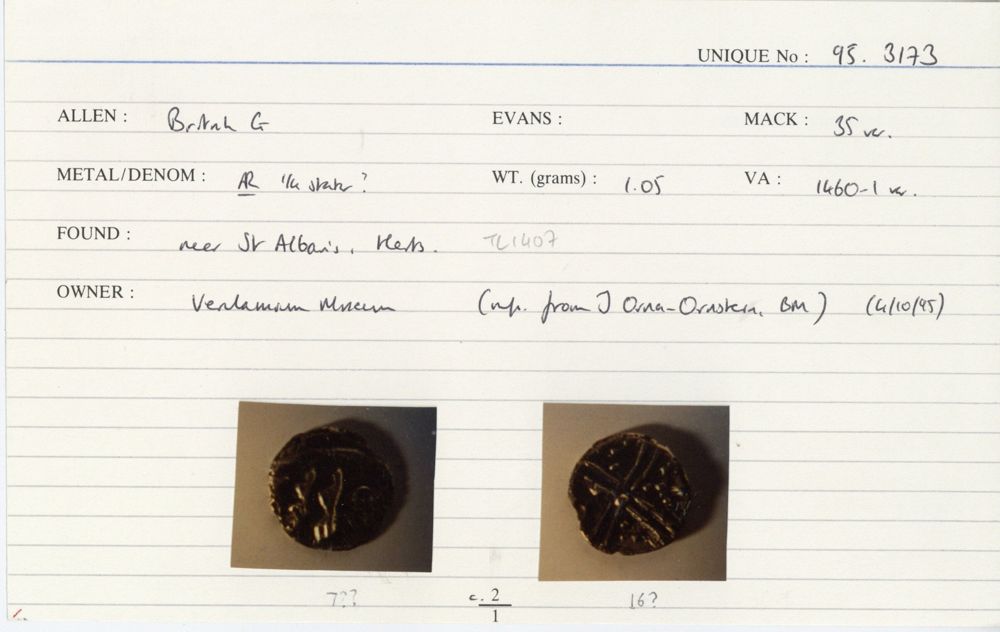 UNIQUE No : 95. 3173
ALLEN : British G EVANS : MACK : 35 var.
METAL/DENOM : AR 1/4 stater? WT. (grams) : 1.05 VA : 1460-1 var.
FOUND : near St Albans, Herts. TL1407
OWNER : Verulamium Museum (inf. from J Orna-Ornstein, BM) (4/10/95)
7?? c. 2/1 16?